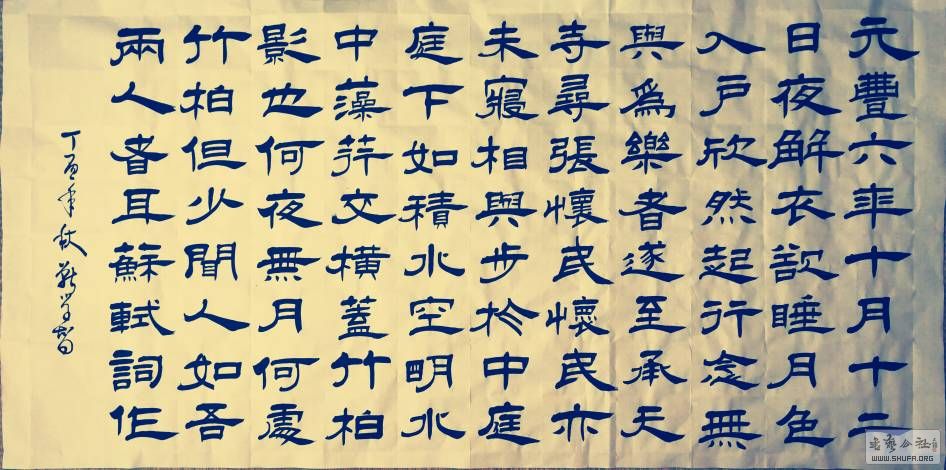 元豐六年十月十二
日夜解衣欲睡月色
入戶欣然起行念無
與爲樂者遂至承天
寺尋張懷民懷民亦
未寢相與步於中庭
庭下如積水空明水
中藻荇交橫蓋竹柏
影也何夜無月何處
竹柏但少聞人如吾
兩人者耳蘇軾詞作
丁酉年秋
书艺公社
WWW.SHUFA.ORG